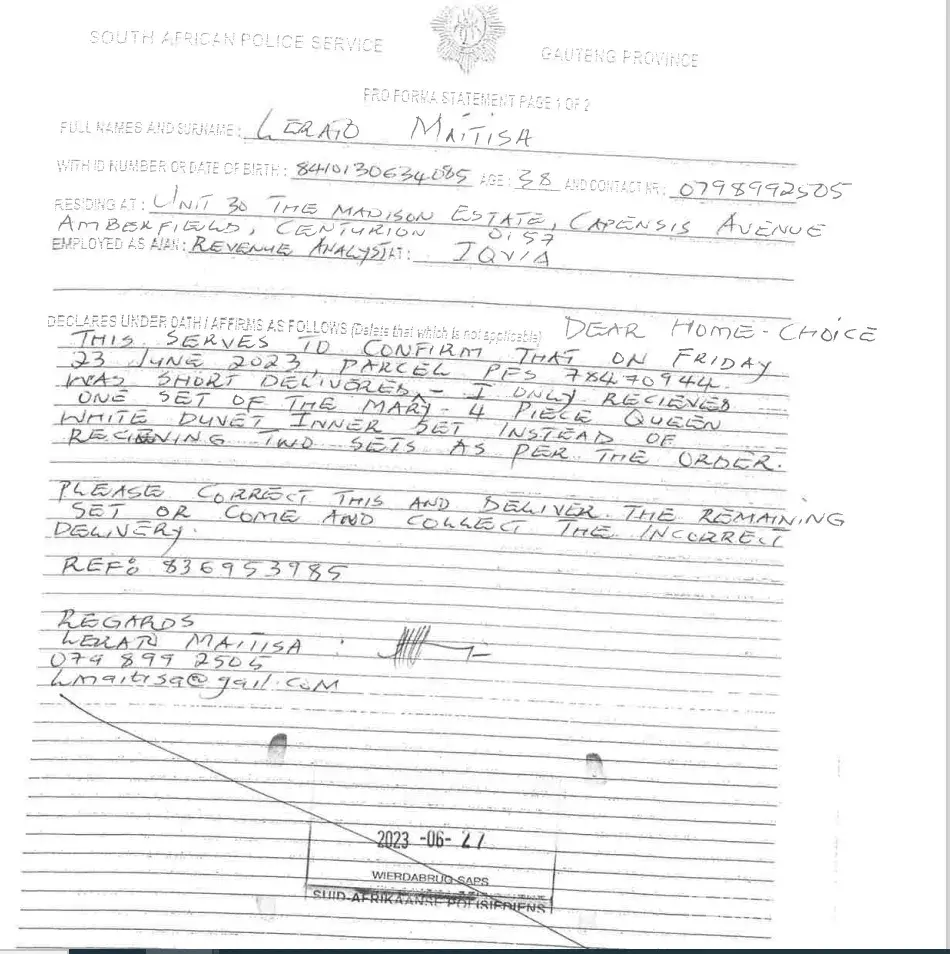 SOUTH AFRICAN POLICE SERVICE
GAUTENG PROVINCE
PRO FORMA STATEMENT PAGE 1 OF 2
FULL NAMES AND SURNAME: LERATO MAITISA
WITH ID NUMBER OR DATE OF BIRTH: 8410130634085 AGE: 38 AND CONTACT NR: 0798992505
RESIDING AT: UNIT 30 THE MADISON ESTATE, CAPENSIS AVENUE
AMBERFIELD, CENTURION 0157
EMPLOYED AS A/AN: REVENUE ANALYST AT: IQVIA
DECLARES UNDER OATH / AFFIRMS AS FOLLOWS (Delete that which is not applicable) DEAR HOME-CHOICE
THIS SERVES TO CONFIRM THAT ON FRIDAY
23 JUNE 2023, PARCEL PFS 78470944
WAS SHORT DELIVERED - I ONLY RECIEVED
ONE SET OF THE MARY - 4 PIECE QUEEN
WHITE DUVET INNER SET INSTEAD OF
RECIEVING TWO SETS AS PER THE ORDER.
PLEASE CORRECT THIS AND DELIVER THE REMAINING
SET OR COME AND COLLECT THE INCORRECT
DELIVERY.
REF: 836953985
REGARDS
LERATO MAITISA :
079 899 2505
lmaitisa@gail.com
2023 -06- 27
WIERDABRUG SAPS
SUID-AFRIKAANSE POLISIEDIENS